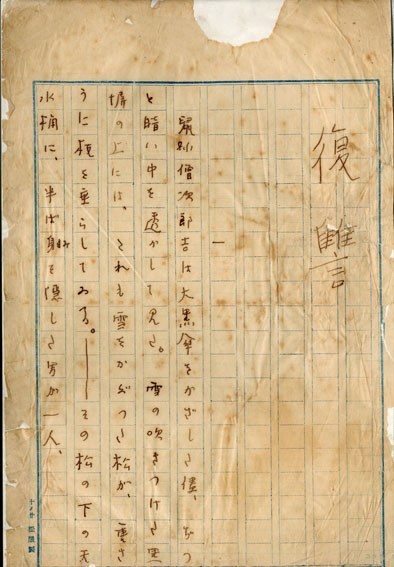 復讐
一
鼠小僧次郎吉は大黒傘をかざした儘、ぢつ
と暗い中を透かして見た。雪の吹きつけた黒
塀の上には、これも雪をかぶつた松が、重さ
うに枝を垂らしてゐる。――その松の下の天
水桶に、半ば身を隠した男が一人、
十ノ廿 松屋製